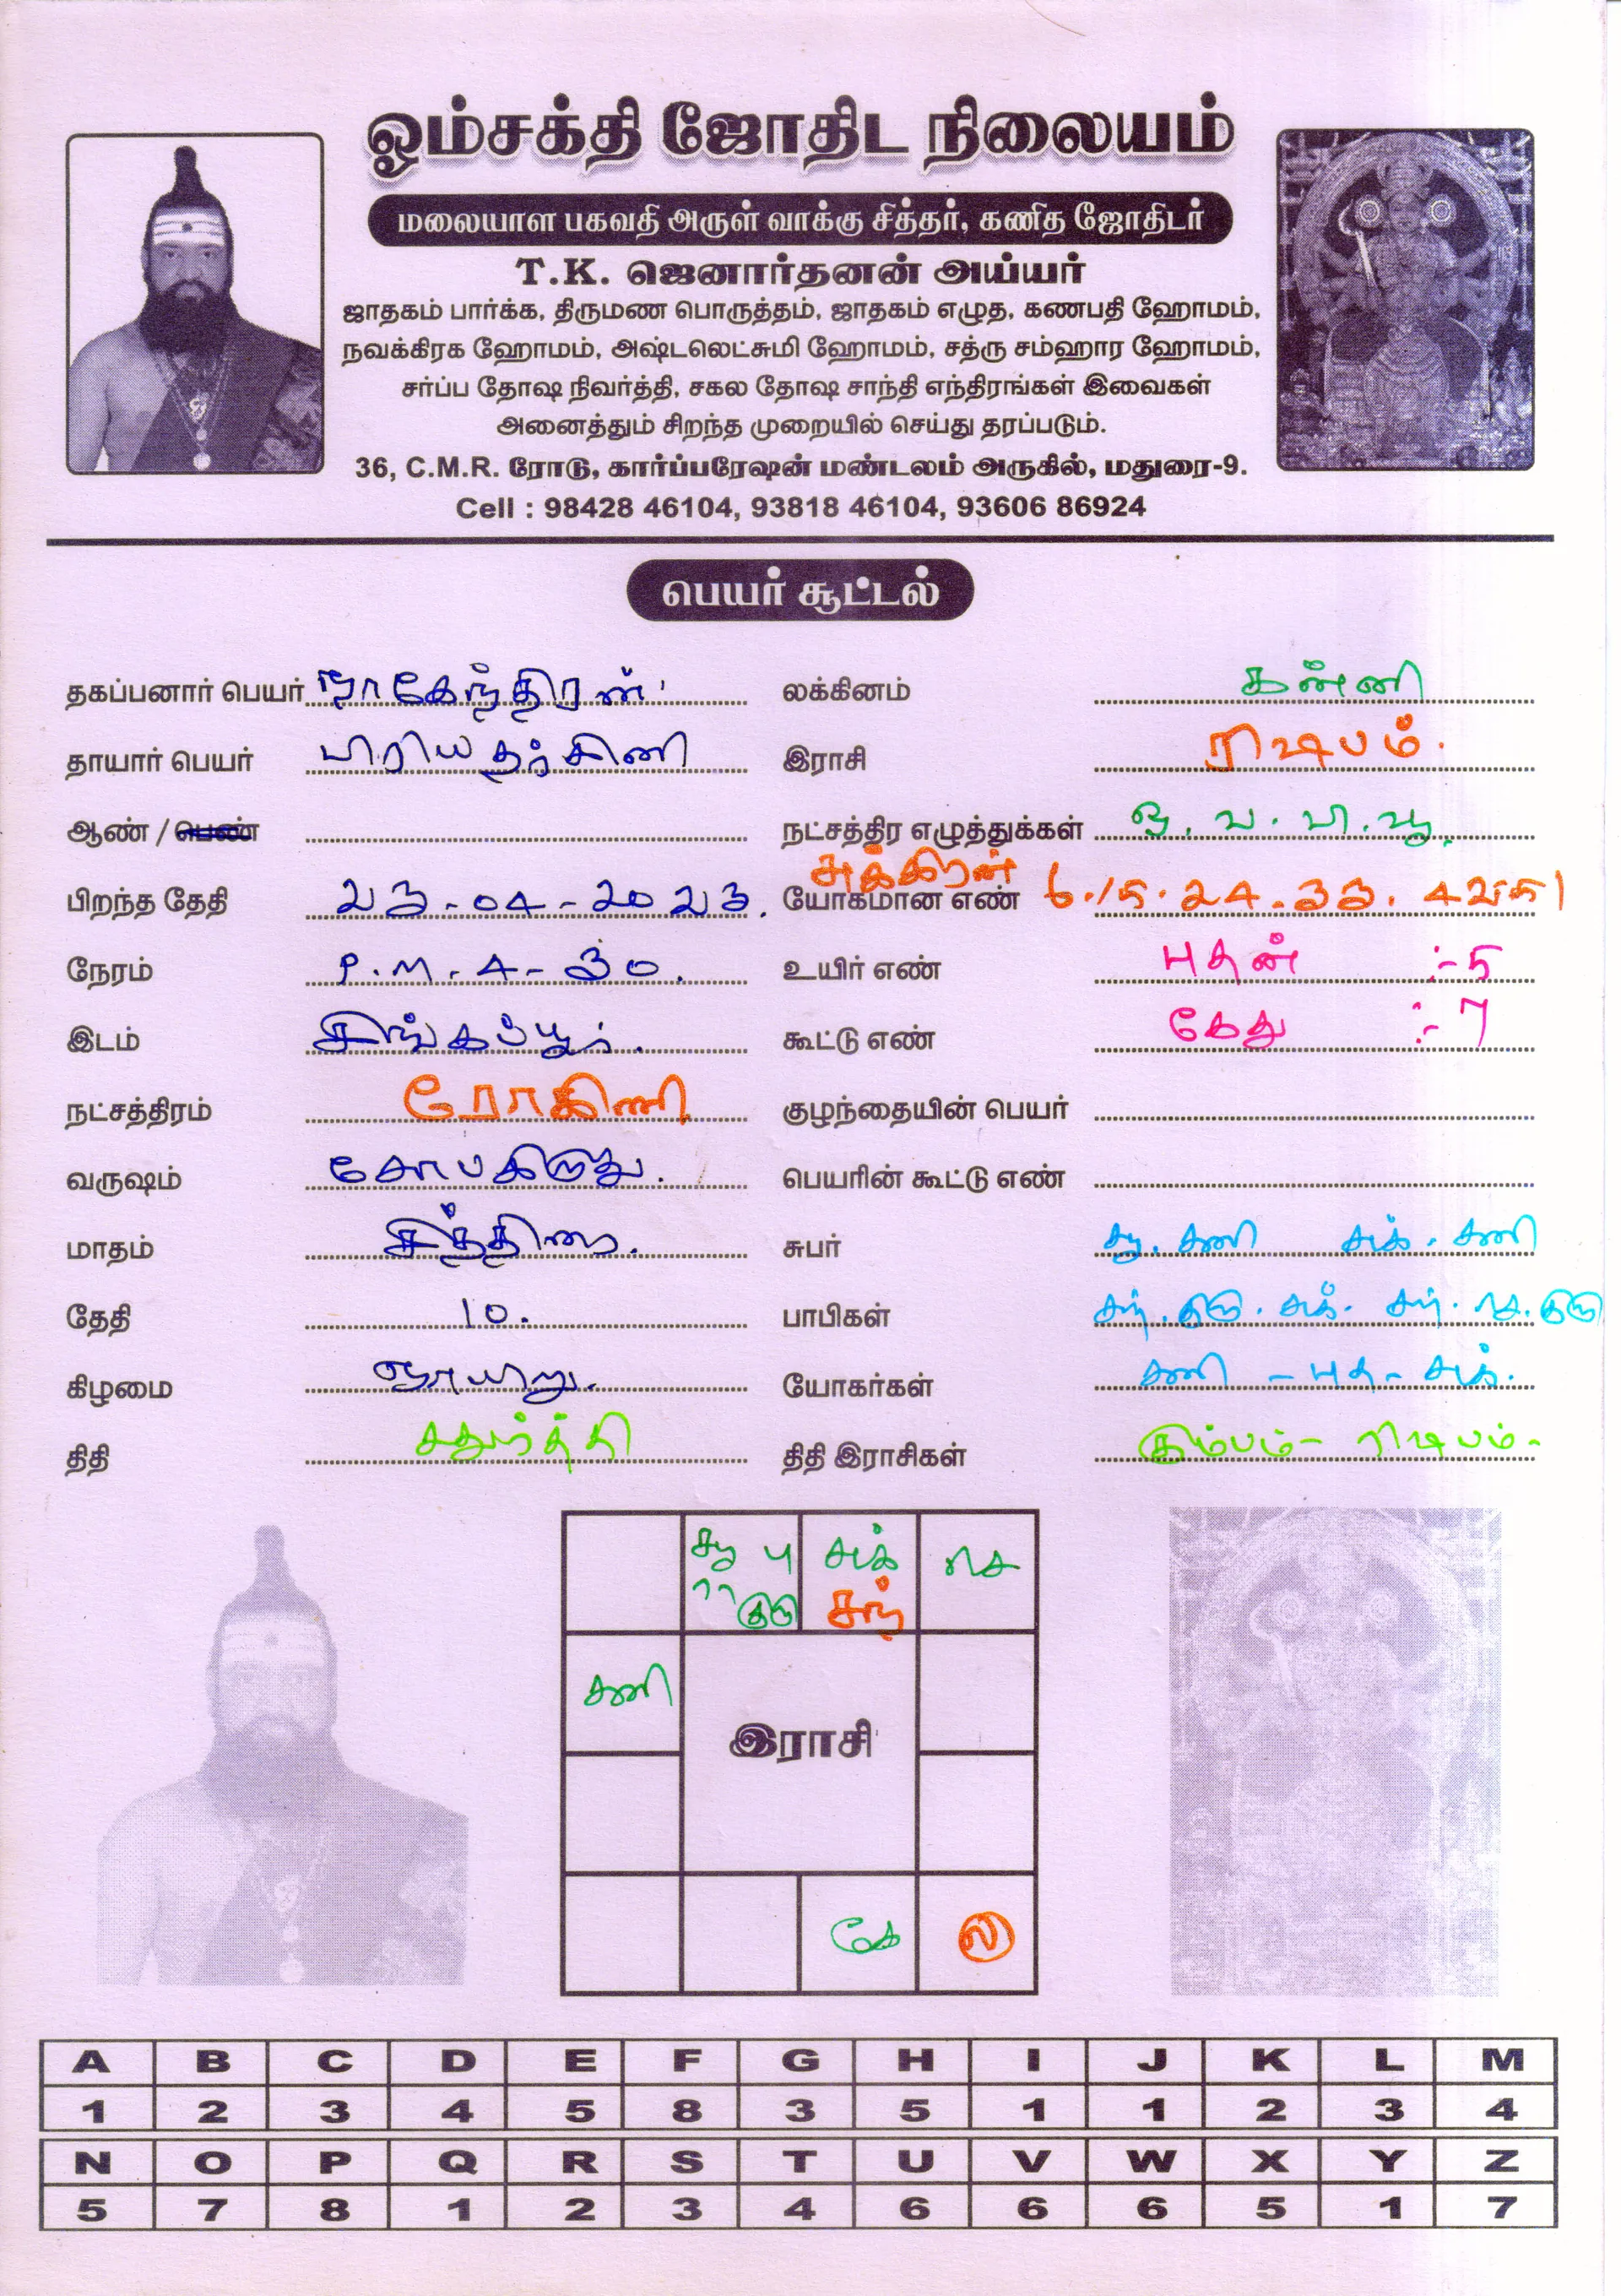 ஓம்சக்தி ஜோதிட நிலையம்
மலையாள பகவதி அருள் வாக்கு சித்தர், கணித ஜோதிடர்
T.K. ஜெனார்தனன் அய்யர்
ஜாதகம் பார்க்க, திருமண பொருத்தம், ஜாதகம் எழுத, கணபதி ஹோமம்,
நவக்கிரக ஹோமம், அஷ்டலெட்சுமி ஹோமம், சத்ரு சம்ஹார ஹோமம்,
சர்ப்ப தோஷ நிவர்த்தி, சகல தோஷ சாந்தி எந்திரங்கள் இவைகள்
அனைத்தும் சிறந்த முறையில் செய்து தரப்படும்.
36, C.M.R. ரோடு, கார்ப்பரேஷன் மண்டலம் அருகில், மதுரை-9.
Cell : 98428 46104, 93818 46104, 93606 86924
பெயர் சூட்டல்
தகப்பனார் பெயர் நாகேந்திரன் லக்கினம் கன்னி
தாயார் பெயர் பிரியதர்சினி இராசி ரிஷபம்.
ஆண் / பெண் நட்சத்திர எழுத்துக்கள் ஒ. வ. வி. வூ.
சுக்கிரன்
பிறந்த தேதி 23-04-2023. யோகமான எண் 6.15.24.33.42.51
நேரம் P.M-4-30. உயிர் எண் புதன் :-5
இடம் சிங்கப்பூர். கூட்டு எண் கேது :-7
நட்சத்திரம் ரோகிணி குழந்தையின் பெயர்
வருஷம் சோபகிருது. பெயரின் கூட்டு எண்
மாதம் சித்திரை. சுபர் சூ. சனி சுக். சனி
தேதி 10. பாபிகள் சந். குரு. சுக். சந். செ. குரு
கிழமை ஞாயிறு. யோகர்கள் சனி - புத - சுக்.
திதி சதுர்த்தி திதி இராசிகள் கும்பம் - ரிஷபம் -
சூ பு சுக் செ
ரா குரு சந்
சனி
இராசி
கே ல
A B C D E F G H I J K L M
1 2 3 4 5 8 3 5 1 1 2 3 4
N O P Q R S T U V W X Y Z
5 7 8 1 2 3 4 6 6 6 5 1 7